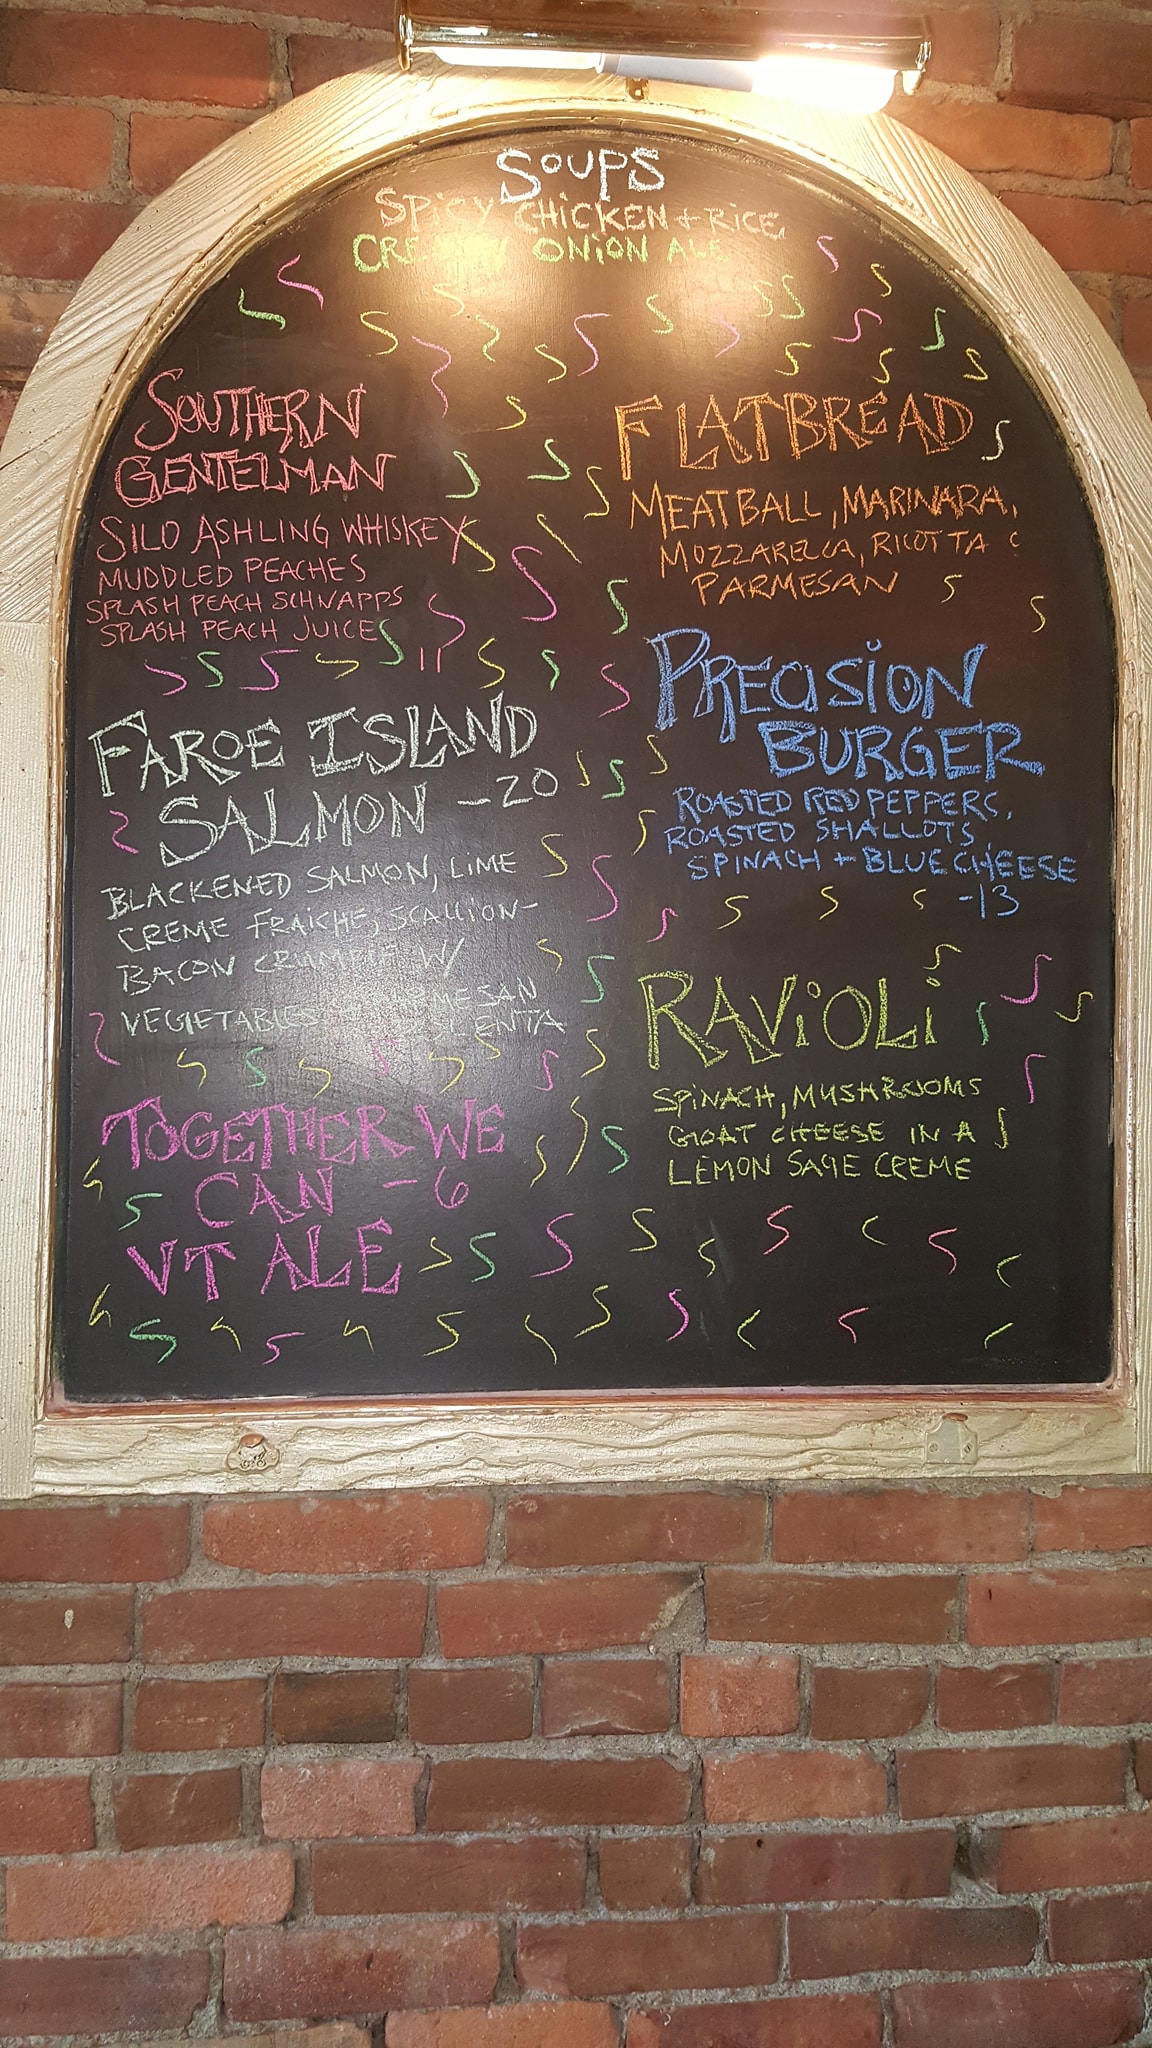 SOUPS
SPICY CHICKEN + RICE
CREAMY ONION ALE
SOUTHERN
GENTELMAN
SILO ASHLING WHISKEY
MUDDLED PEACHES
SPLASH PEACH SCHNAPPS
SPLASH PEACH JUICE
11
FAROE ISLAND
SALMON -20
BLACKENED SALMON, LIME
CREME FRAICHE, SCALLION-
BACON CRUMBLE W/
VEGETABLE PARMESAN
POLENTA
TOGETHER WE
CAN -6
VT ALE
FLATBREAD
MEATBALL, MARINARA,
MOZZARELLA, RICOTTA &
PARMESAN
PRECISION
BURGER
ROASTED RED PEPPERS,
ROASTED SHALLOTS,
SPINACH + BLUE CHEESE
-13
RAVIOLI
SPINACH, MUSHROOMS
GOAT CHEESE IN A
LEMON SAGE CREME